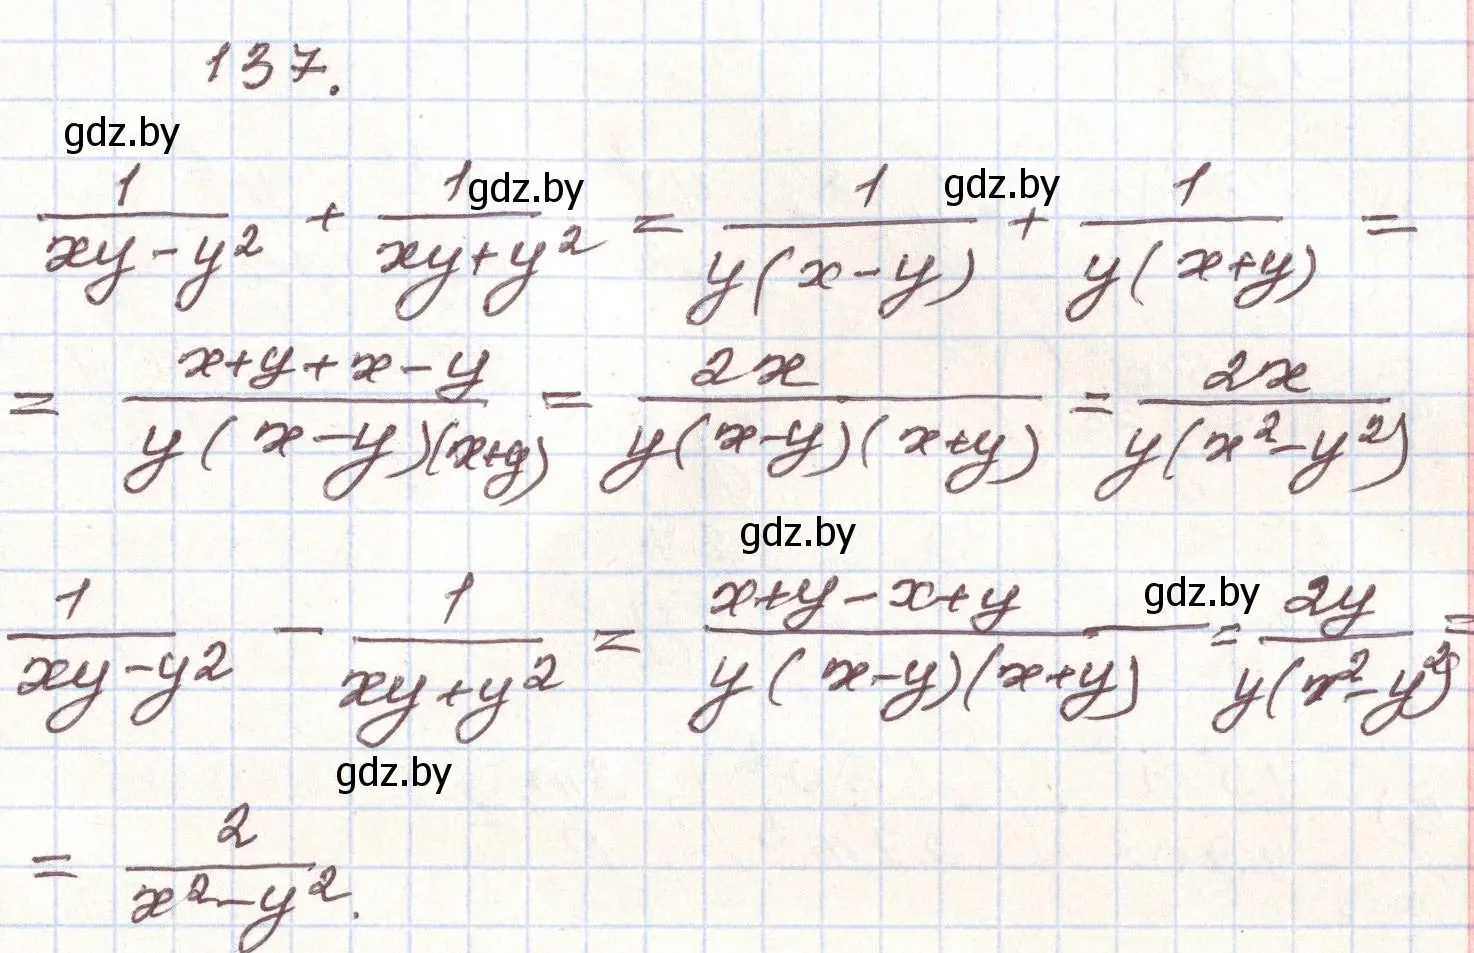 137.
gdz.by
1/(xy-y²) + 1/(xy+y²) = 1/(y(x-y)) + 1/(y(x+y)) =
gdz.by gdz.by
= (x+y+x-y)/(y(x-y)(x+y)) = 2x/(y(x-y)(x+y)) = 2x/(y(x²-y²))
gdz.by
1/(xy-y²) - 1/(xy+y²) = (x+y-x+y)/(y(x-y)(x+y)) = 2y/(y(x²-y²)) =
gdz.by
gdz.by
= 2/(x²-y²).